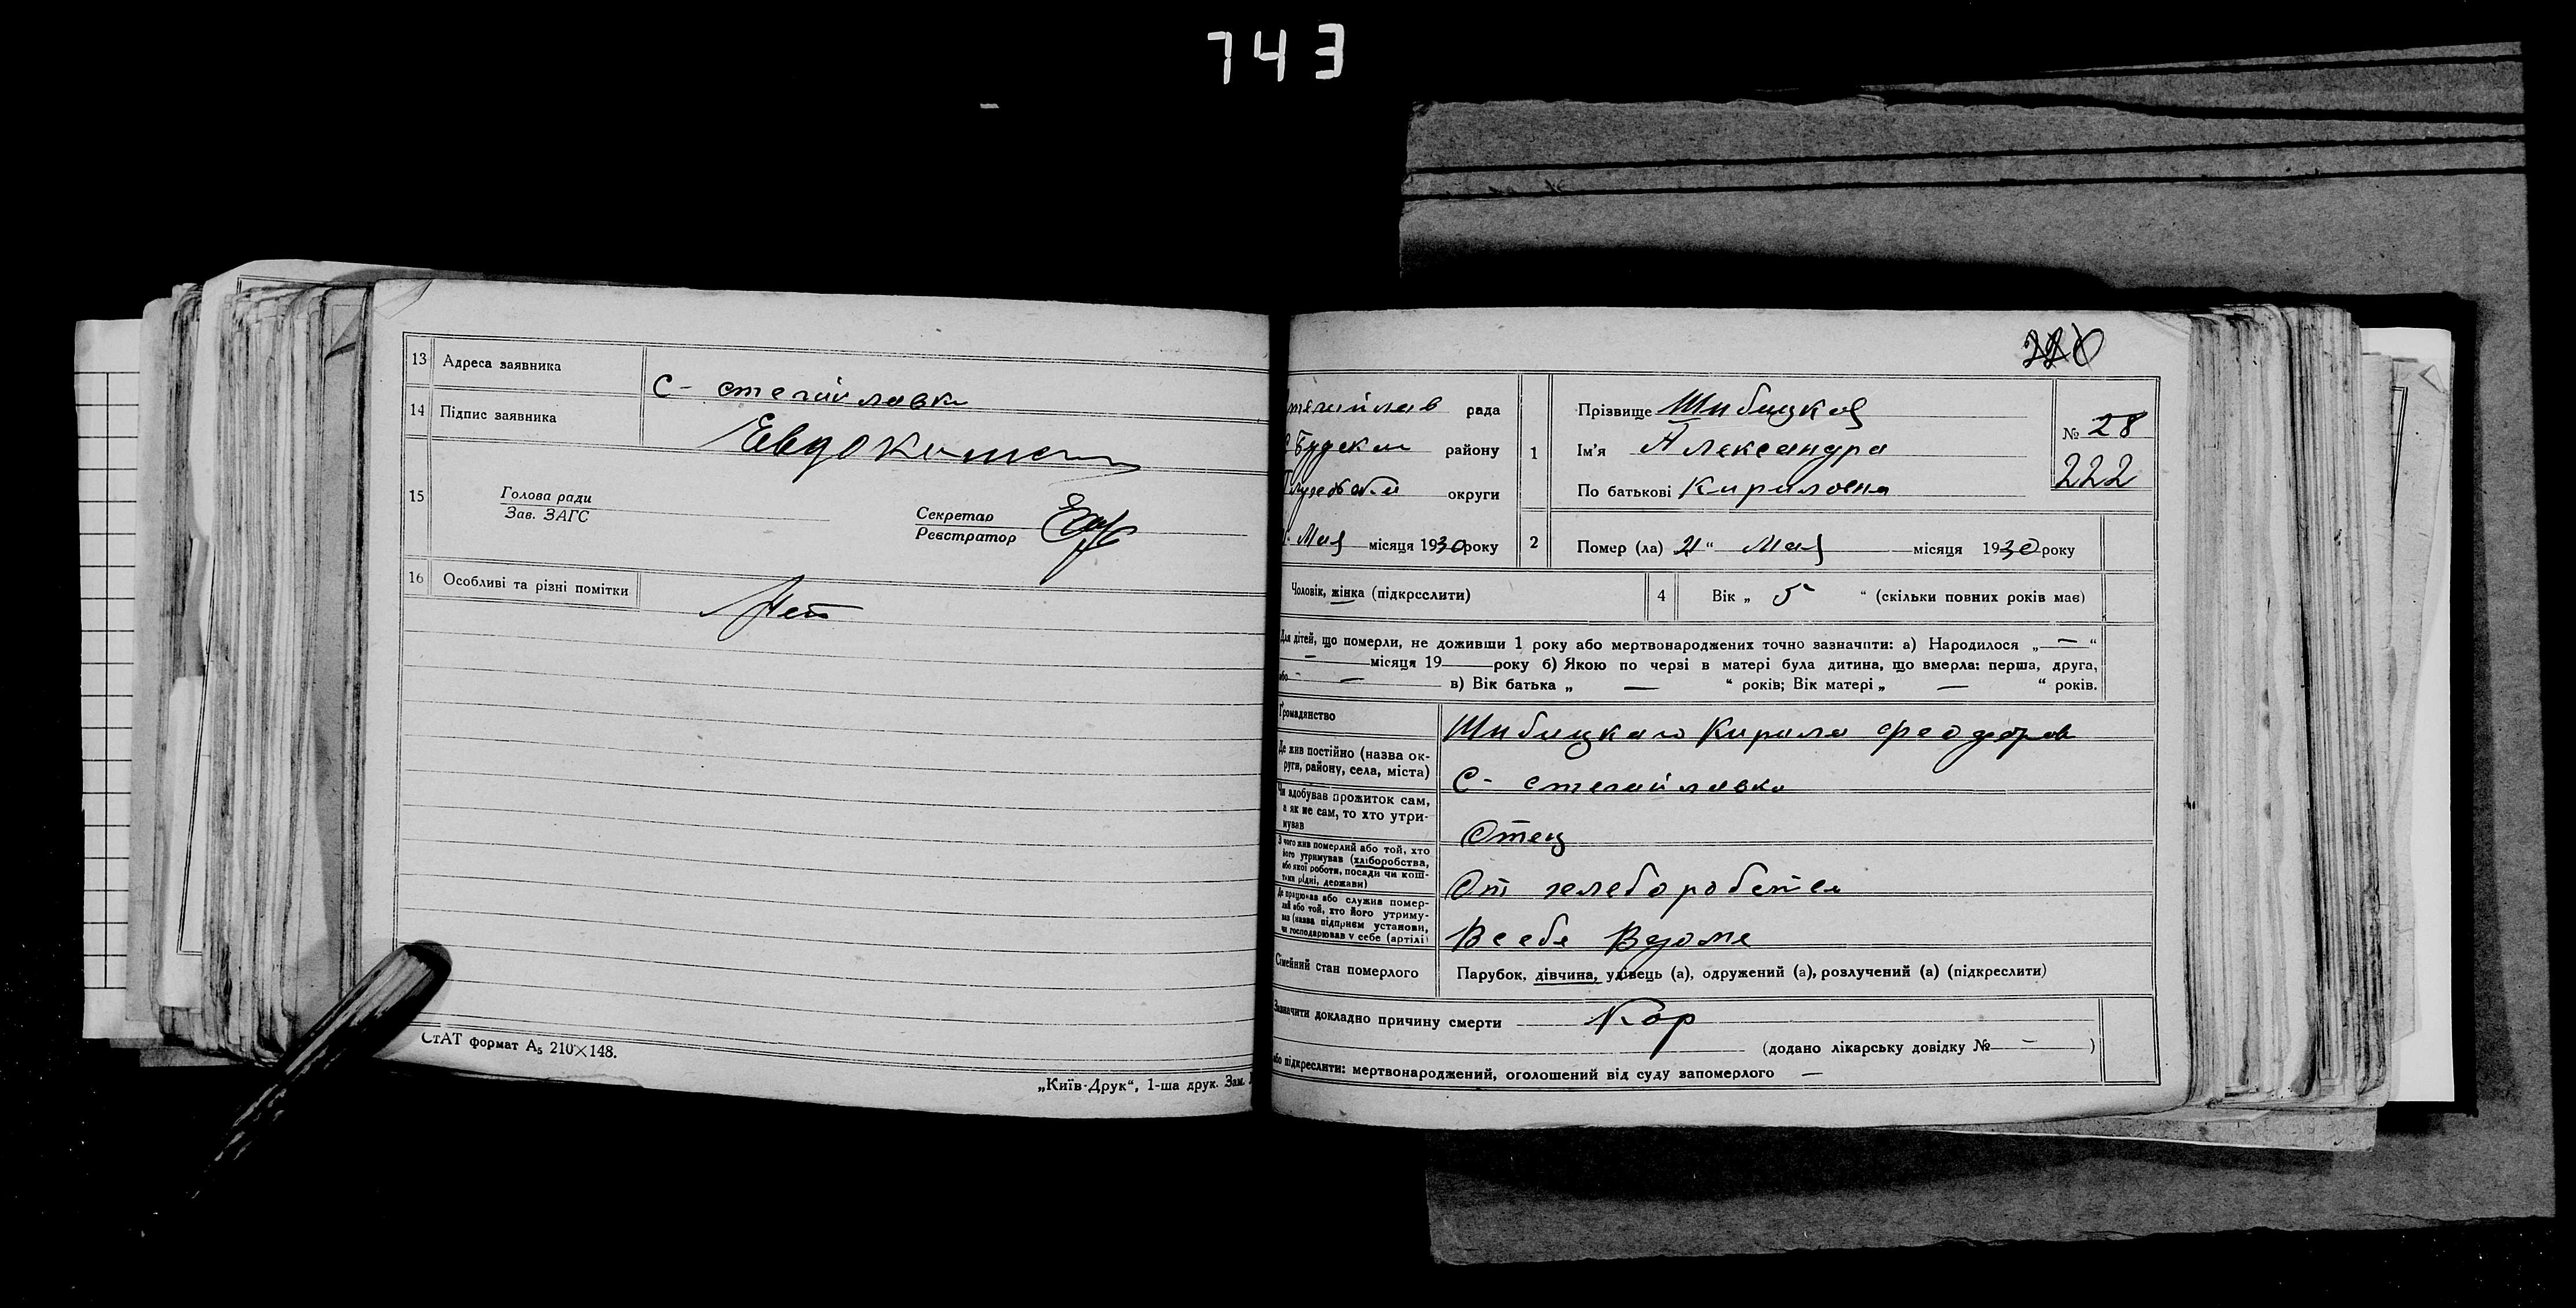 743
13 Адреса заявника С- стегайловка
14 Підпис заявника Евдокимен
15 Голова ради
Зав. ЗАГС
Секретар
Реєстратор
16 Особливі та різні помітки Нет
СтАТ формат А₅ 210×148.
„Київ-Друк“, 1-ша друк. Зам.
рада
району
округи
Мая місяця 1930 року
1 Прізвище Шибицкая
Ім'я Александра
По батькові Кириловна
№ 28
222
2 Помер (ла) 21 “ Мая місяця 1930 року
Чоловік, жінка (підкреслити)
4 Вік „ 5 “ (скільки повних років має)
Для дітей, що померли, не доживши 1 року або мертвонароджених точно зазначити: а) Народилося „ — “
— місяця 19 року б) Якою по черзі в матері була дитина, що вмерла: перша, друга,
або — в) Вік батька „ — “ років; Вік матері „ — “ років.
Громадянство Шибицкаго Кирила Феодоров
Де жив постійно (назва округи, району, села, міста) С- стегайловка
Чи здобував прожиток сам, а як не сам, то хто утримував Отец
З чого жив померлий або той, хто його утримував (хліборобства, або якої роботи, посади чи коштами рідні, держави) От
Де працював або служив померлий або той, хто його утримував (назва підприєм установи, чи господарював у себе (артілі) В себе Вдоме
Сімейний стан померлого Парубок, дівчина, удівець (а), одружений (а), розлучений (а) (підкреслити)
Зазначити докладно причину смерти Кор
(додано лікарську довідку № — )
або підкреслити: мертвонароджений, оголошений від суду запомерлого —